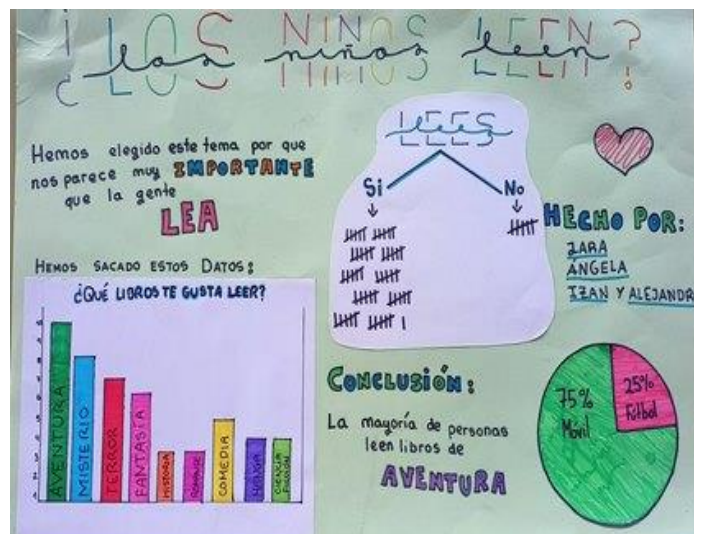 ¿LOS NIÑOS LEEN?
los niños leen
Hemos elegido este tema por que
nos parece muy IMPORTANTE
que la gente
LEA
HEMOS SACADO ESTOS DATOS:
¿QUÉ LIBROS TE GUSTA LEER?
AVENTURA
MISTERIO
TERROR
FANTASÍA
HISTORIA
ROMANCE
COMEDIA
MANGA
CIENCIA
FICCIÓN
LEES
lees
Si
No
HECHO POR:
ZARA
ÁNGELA
IZAN Y ALEJANDR
CONCLUSIÓN:
La mayoría de personas
leen libros de
AVENTURA
75%
Móvil
25%
Fútbol